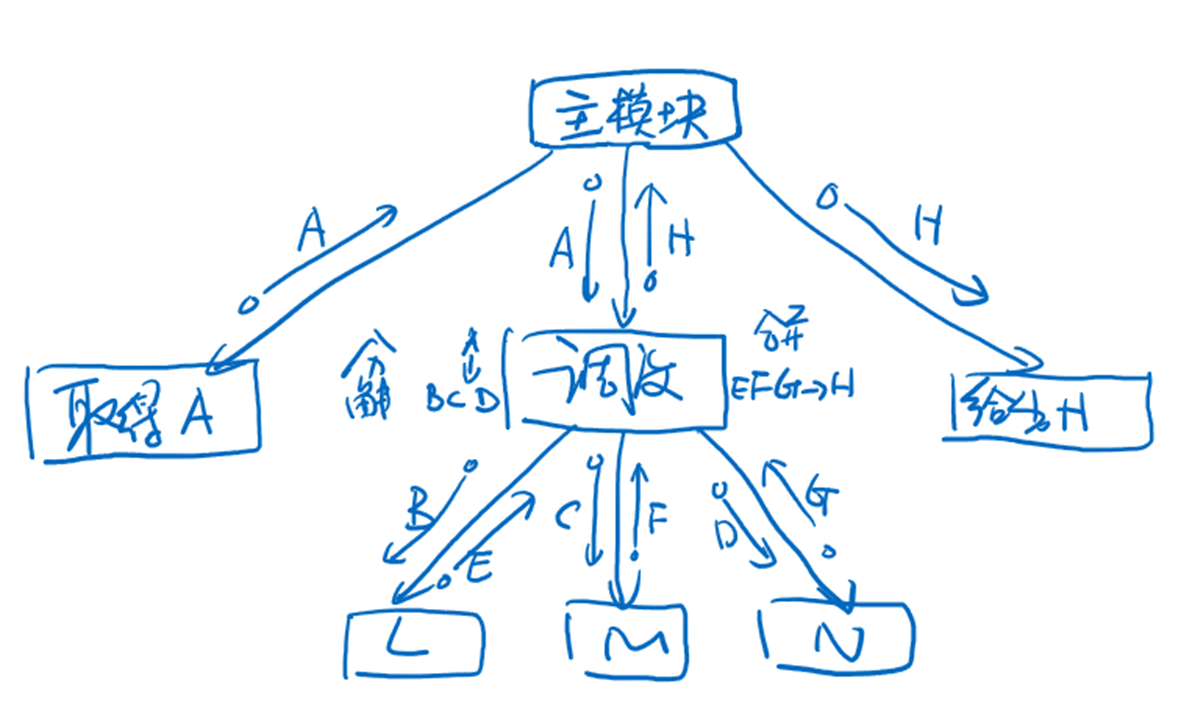 主模块
A
A
H
H
取得 A
分解
A
BCD
调度
合并
EFG→H
给出 H
B
E
C
F
D
G
L
M
N